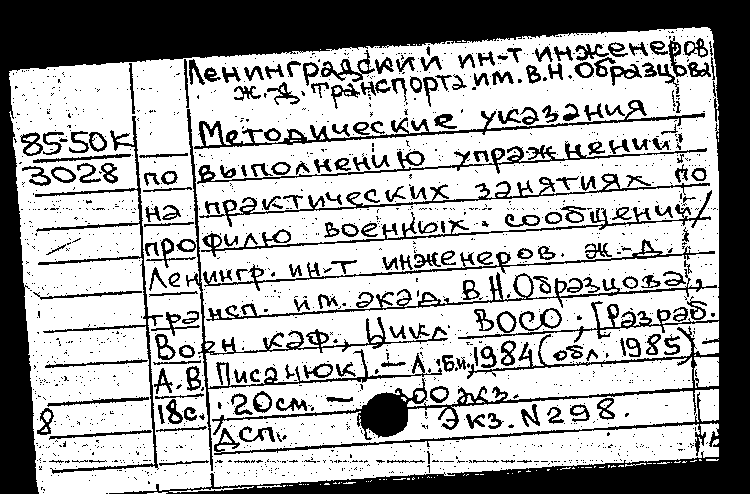 Ленинградский ин-т инженеров
ж.-д. транспорта им. В.Н. Образцова
85-50К
Методические указания
3028
по выполнению упражнений
на практических занятиях по
профилю военных сообщений /
Ленингр. ин-т инженеров ж.-д.
трансп. им. акад. В.Н. Образцова,
Воен. каф., Цикл ВОСО; [Разраб.
А.В. Писанюк]. - Л.: Б.и., 1984 (обл. 1985). -
18с.; 20см. - 300 экз.
8
Дсп. Экз. N 298.